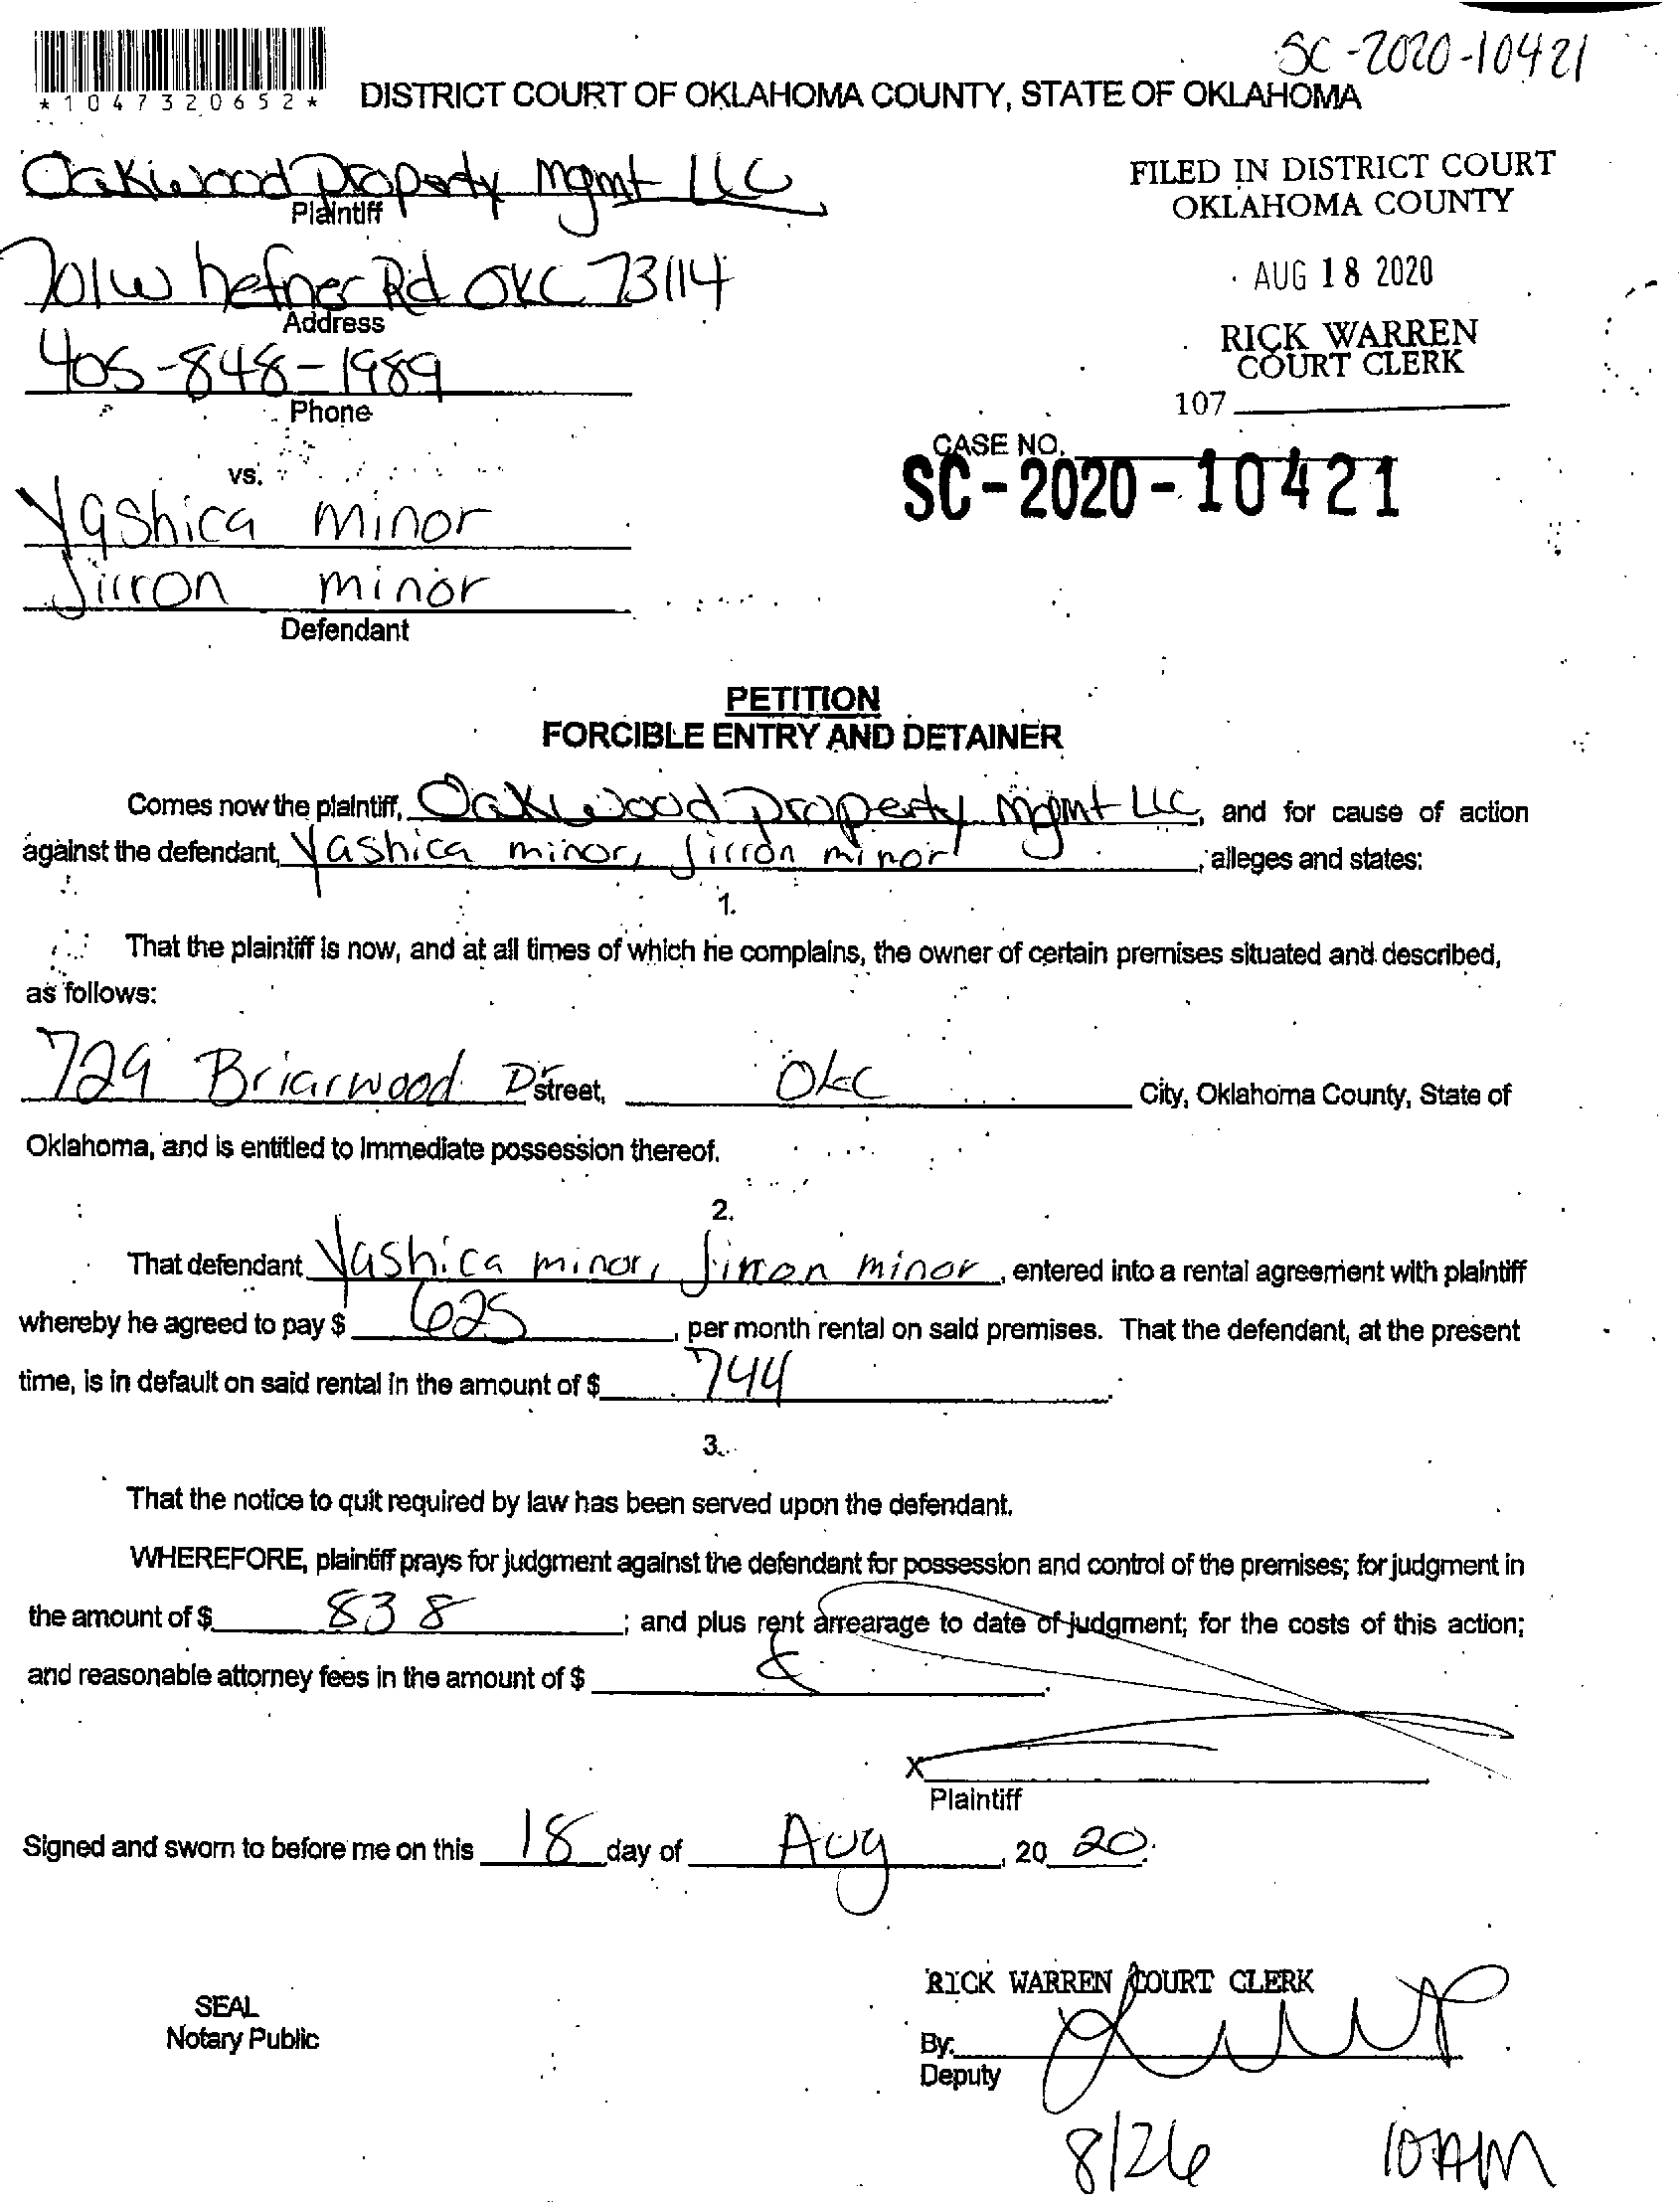 SC-2020-10421
*1047320652*
DISTRICT COURT OF OKLAHOMA COUNTY, STATE OF OKLAHOMA
Oakwood Property Mgmt LLC
Plaintiff
FILED IN DISTRICT COURT
OKLAHOMA COUNTY
701 W hefner Rd OKC 73114
Address
AUG 18 2020
405-848-1989
Phone
RICK WARREN
COURT CLERK
107
CASE NO.
SC-2020-10421
vs.
Yashica minor
Jirron minor
Defendant
PETITION
FORCIBLE ENTRY AND DETAINER
Comes now the plaintiff, Oakwood Property Mgmt LLC, and for cause of action
against the defendant, Yashica minor, Jirron minor, alleges and states:
1.
That the plaintiff is now, and at all times of which he complains, the owner of certain premises situated and described,
as follows:
729 Briarwood Dr street, OKC City, Oklahoma County, State of
Oklahoma, and is entitled to immediate possession thereof.
2.
That defendant Yashica minor, Jirron minor, entered into a rental agreement with plaintiff
whereby he agreed to pay $ 625, per month rental on said premises. That the defendant, at the present
time, is in default on said rental in the amount of $ 744.
3.
That the notice to quit required by law has been served upon the defendant.
WHEREFORE, plaintiff prays for judgment against the defendant for possession and control of the premises; for judgment in
the amount of $ 838; and plus rent arrearage to date of judgment; for the costs of this action;
and reasonable attorney fees in the amount of $
X
Plaintiff
Signed and sworn to before me on this 18 day of Aug, 20 20.
RICK WARREN COURT CLERK
SEAL
Notary Public
By:
Deputy
8/26 10AM